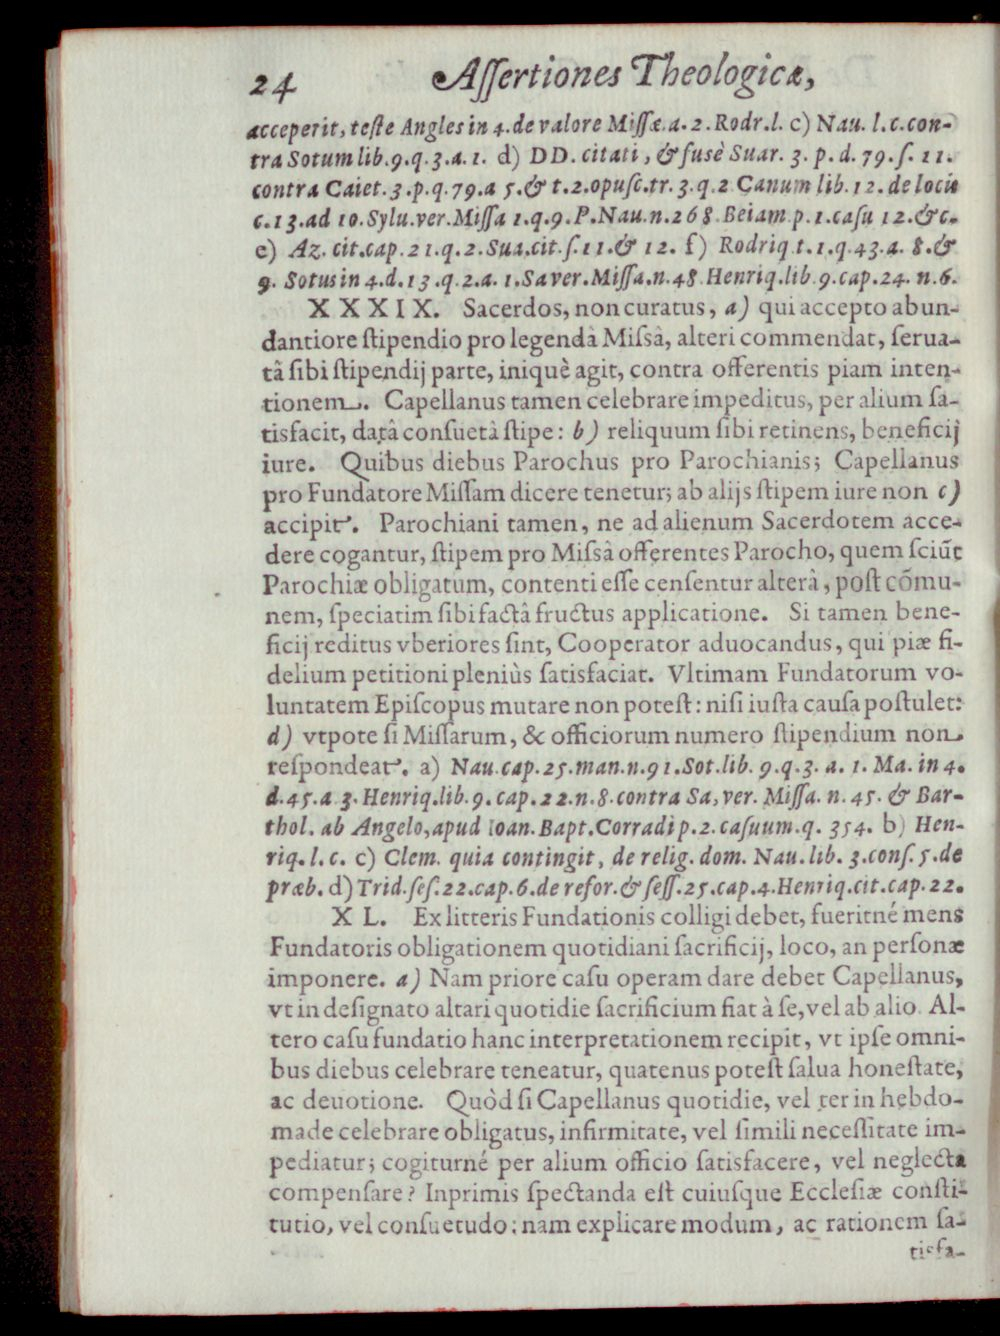 24 Aſſertiones Theologicæ,
acceperit, teſte Angles in 4. de valore Miſſæ. a. 2. Rodr. l. c) Nau. l. c. con-
tra Sotum lib. 9. q. 3. a. 1. d) DD. citati, & fusè Suar. 3. p. d. 79. ſ. 11.
contra Caiet. 3. p. q. 79. a 5. & t. 2. opuſc. tr. 3. q. 2 Canum lib. 12. de locis
c. 13. ad 10. Sylu. ver. Miſſa 1. q. 9. P. Nau. n. 268. Beiam p. 1. caſu 12. &c.
e) Az. cit. cap. 21. q. 2. Sua. cit. ſ. 11. & 12. f) Rodriq t. 1. q. 43. a. 8. &
9. Sotus in 4. d. 13. q. 2. a. 1. Sa ver. Miſſa. n. 48 Henriq. lib 9. cap. 24. n. 6.
XXXIX. Sacerdos, non curatus, a) qui accepto abun-
dantiore ſtipendio pro legendâ Miſsâ, alteri commendat, ſerua-
tâ ſibi ſtipendij parte, iniquè agit, contra offerentis piam inten-
tionem. Capellanus tamen celebrare impeditus, per alium ſa-
tisfacit, datâ conſuetâ ſtipe: b) reliquum ſibi retinens, beneficij
iure. Quibus diebus Parochus pro Parochianis; Capellanus
pro Fundatore Miſſam dicere tenetur; ab alijs ſtipem iure non c)
accipit. Parochiani tamen, ne ad alienum Sacerdotem acce-
dere cogantur, ſtipem pro Miſsâ offerentes Parocho, quem ſciũt
Parochiæ obligatum, contenti eſſe cenſentur alterâ, poſt cõmu-
nem, ſpeciatim ſibi factâ fructus applicatione. Si tamen bene-
ficij reditus vberiores ſint, Cooperator aduocandus, qui piæ fi-
delium petitioni pleniùs ſatisfaciat. Vltimam Fundatorum vo-
luntatem Epiſcopus mutare non poteſt: niſi iuſta cauſa poſtulet:
d) vtpote ſi Miſſarum, & officiorum numero ſtipendium non
reſpondeat. a) Nau. cap. 25. man. n. 91. Sot. lib. 9. q. 3. a. 1. Ma. in 4.
d. 45. a 3. Henriq. lib. 9. cap. 22. n. 8. contra Sa, ver. Miſſa. n. 45. & Bar-
thol. ab Angelo, apud Ioan. Bapt. Corradi p. 2. caſuum. q. 354. b) Hen-
riq. l. c. c) Clem. quia contingit, de relig. dom. Nau. lib. 3. conſ. 5. de
præb. d) Trid. ſeſ. 22. cap. 6. de refor. & ſeſſ. 25. cap. 4. Henriq. cit. cap. 22.
XL. Ex litteris Fundationis colligi debet, fueritné mens
Fundatoris obligationem quotidiani ſacrificij, loco, an perſonæ
imponere. a) Nam priore caſu operam dare debet Capellanus,
vt in deſignato altari quotidie ſacrificium fiat à ſe, vel ab alio. Al-
tero caſu fundatio hanc interpretationem recipit, vt ipſe omni-
bus diebus celebrare teneatur, quatenus poteſt ſalua honeſtate,
ac deuotione. Quòd ſi Capellanus quotidie, vel ter in hebdo-
made celebrare obligatus, infirmitate, vel ſimili neceſſitate im-
pediatur; cogiturné per alium officio ſatisfacere, vel neglecta
compenſare? Inprimis ſpectanda eſt cuiuſque Eccleſiæ conſti-
tutio, vel conſuetudo: nam explicare modum, ac rationem ſa-
tisfa-